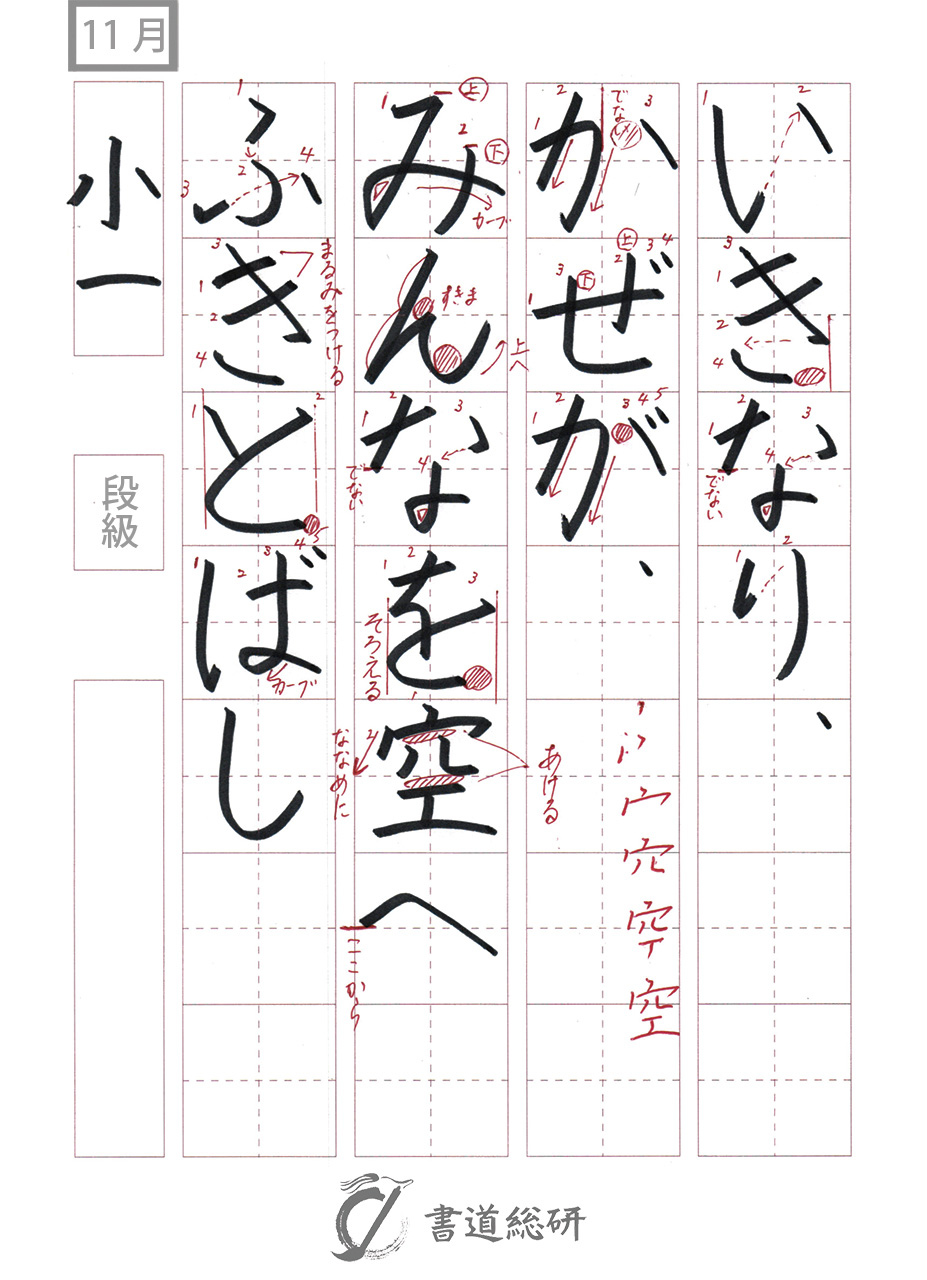 11月
いきなり、
でない
かぜが、
でない
上
下
あける
みんなを空へ
上
下
カーブ
すきま
上へ
でない
そろえる
ななめに
ここから
ふきとばし
まるみをつける
カーブ
小一
段級
書道総研